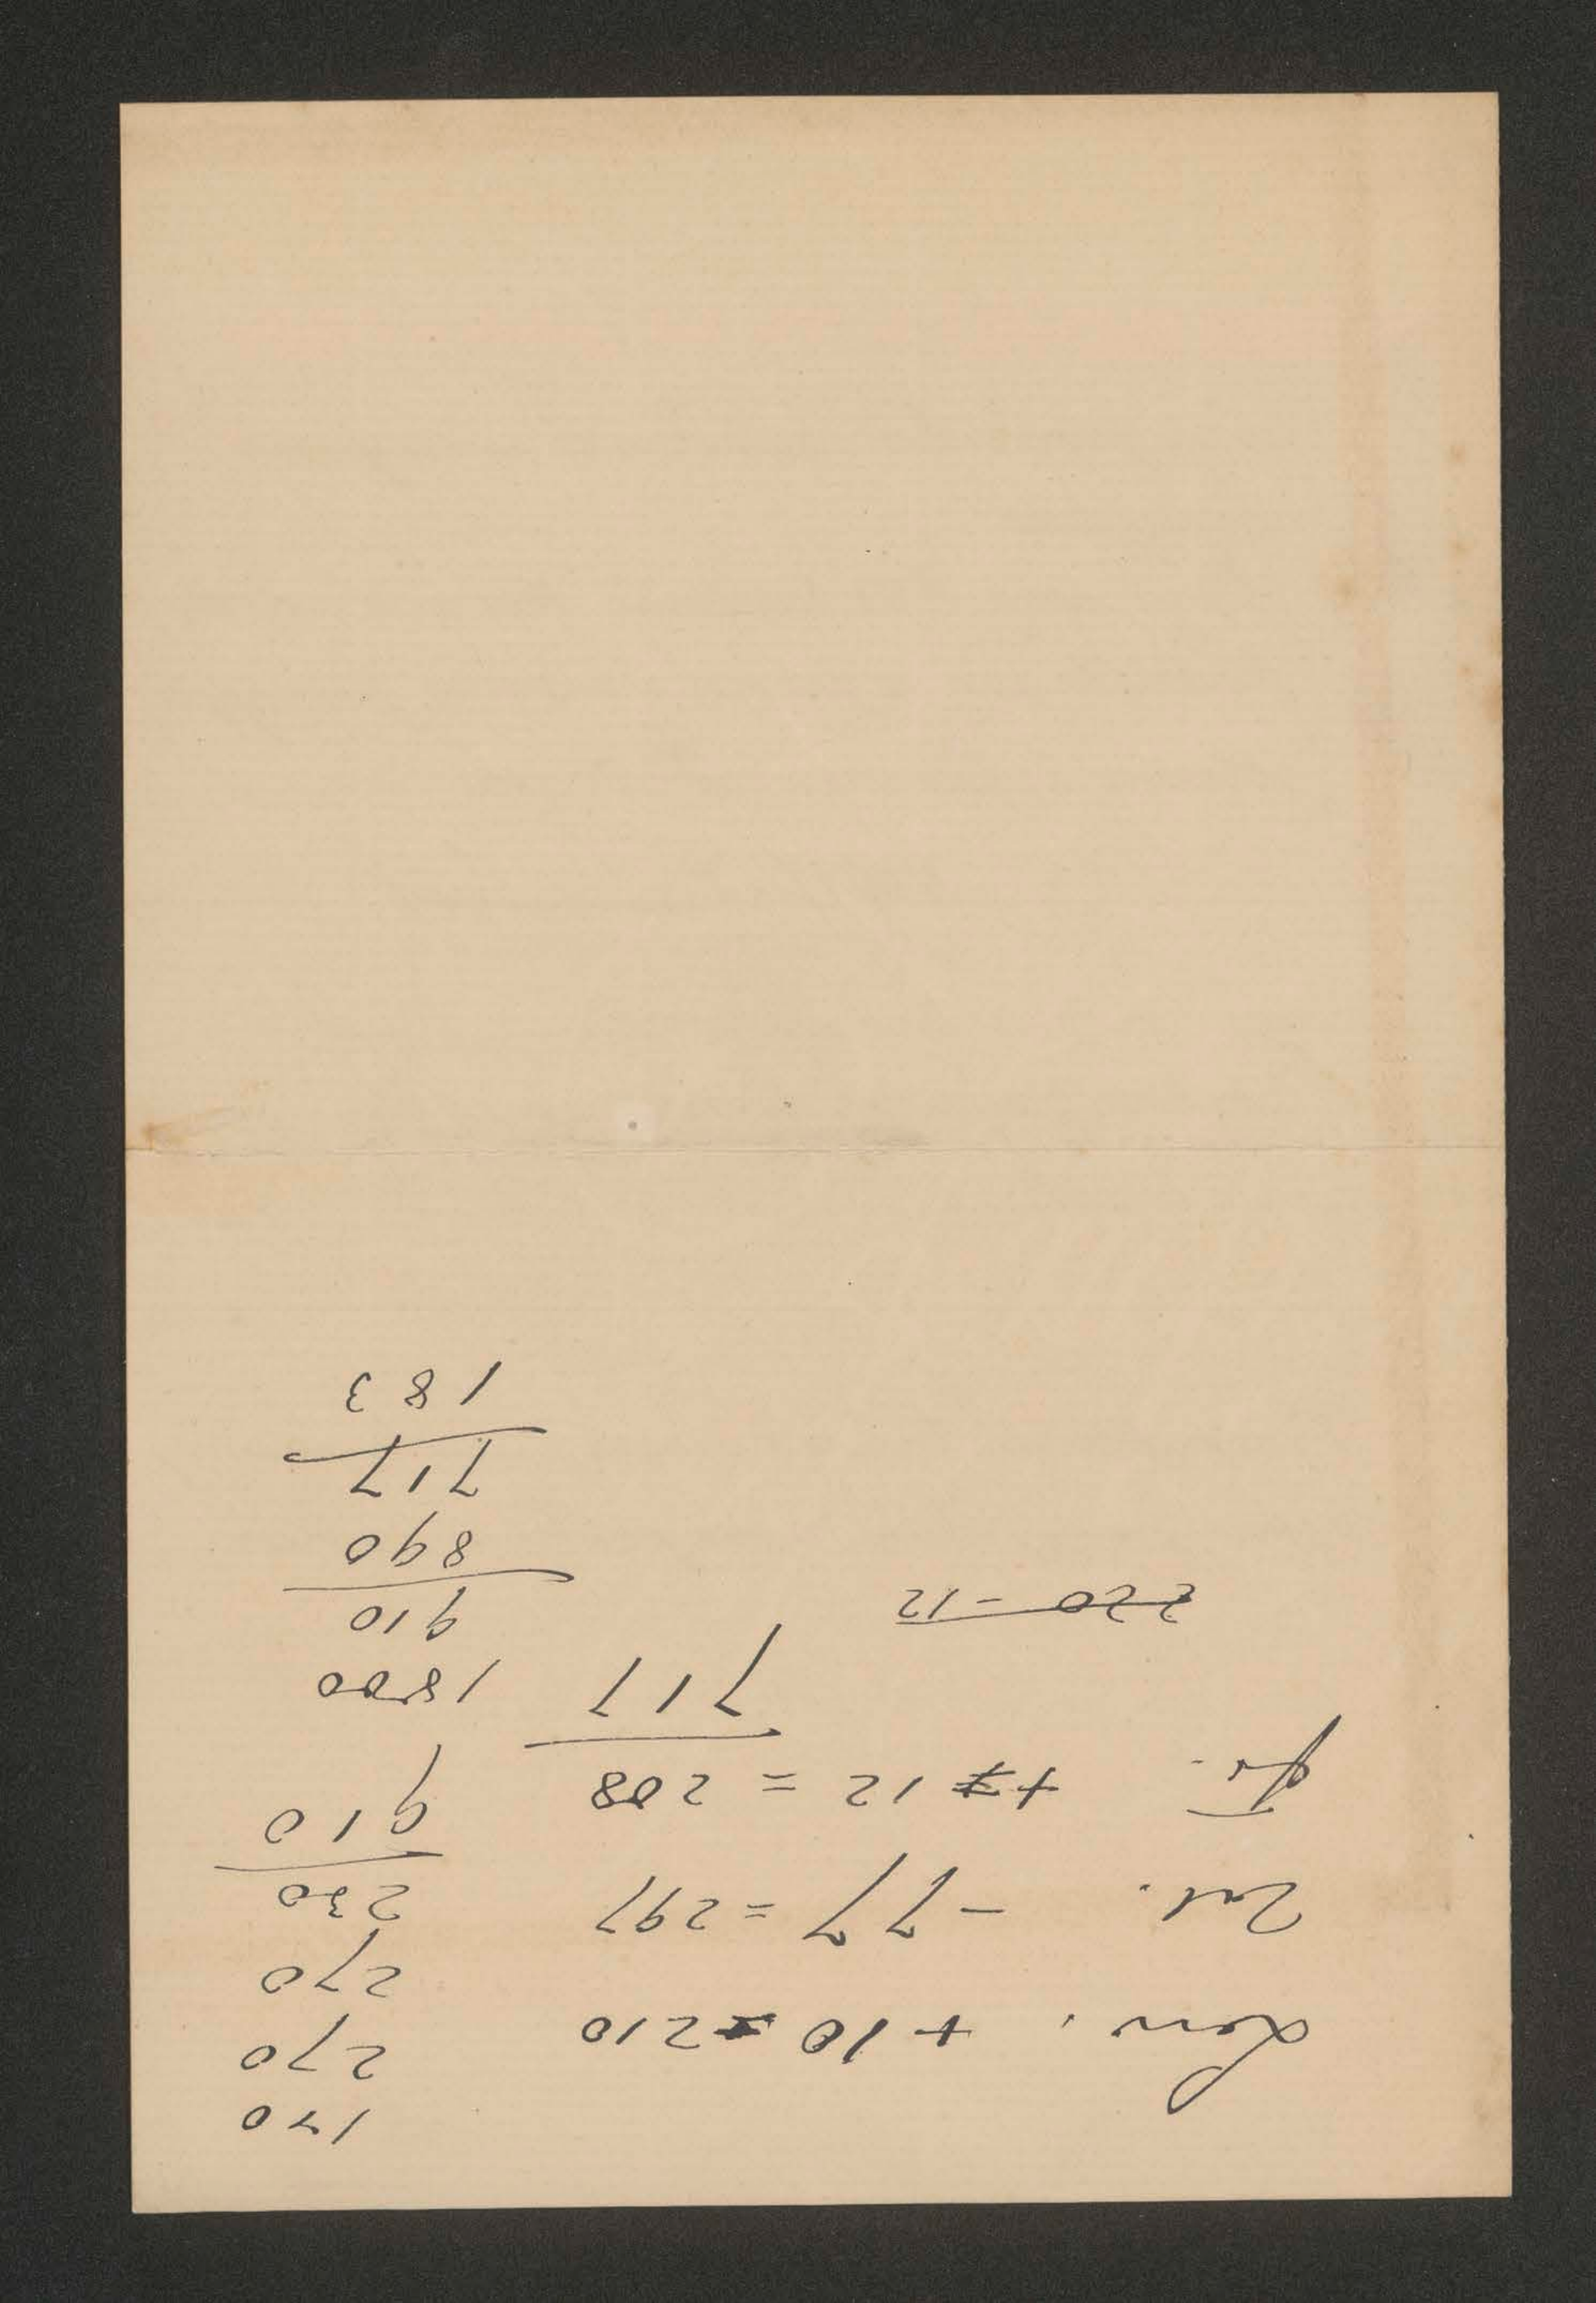 + 10 = 210
Zat. - 77 = 297
+ 12 = 208
717
220 - 12
140
270
270
230
910
1800
910
890
717
183